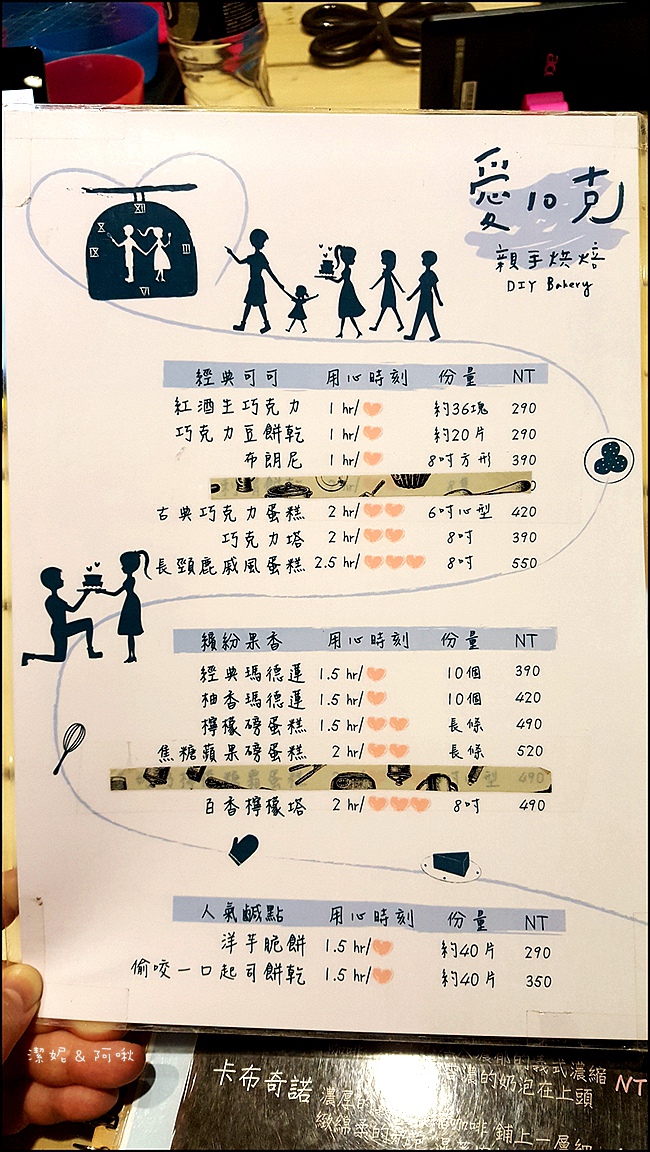 愛10克
親手烘焙
DIY Bakery
XII
IX III
VI
經典可可 用心時刻 份量 NT
紅酒生巧克力 1 hr/ 約36塊 290
巧克力豆餅乾 1 hr/ 約20片 290
布朗尼 1 hr/ 8吋方形 390
古典巧克力蛋糕 2 hr/ 6吋心型 420
巧克力塔 2 hr/ 8吋 390
長頸鹿戚風蛋糕 2.5 hr/ 8吋 550
繽紛果香 用心時刻 份量 NT
經典瑪德蓮 1.5 hr/ 10個 390
柚香瑪德蓮 1.5 hr/ 10個 420
檸檬磅蛋糕 1.5 hr/ 長條 490
焦糖蘋果磅蛋糕 2 hr/ 長條 520
490
百香檸檬塔 2 hr/ 8吋 490
人氣鹹點 用心時刻 份量 NT
洋芋脆餅 1.5 hr/ 約40片 290
偷咬一口起司餅乾 1.5 hr/ 約40片 350
潔妮&阿啾
的義式濃縮
卡布奇諾 的奶泡在上頭 NT
濃厚的
緻綿柔的 咖啡 鋪上一層細